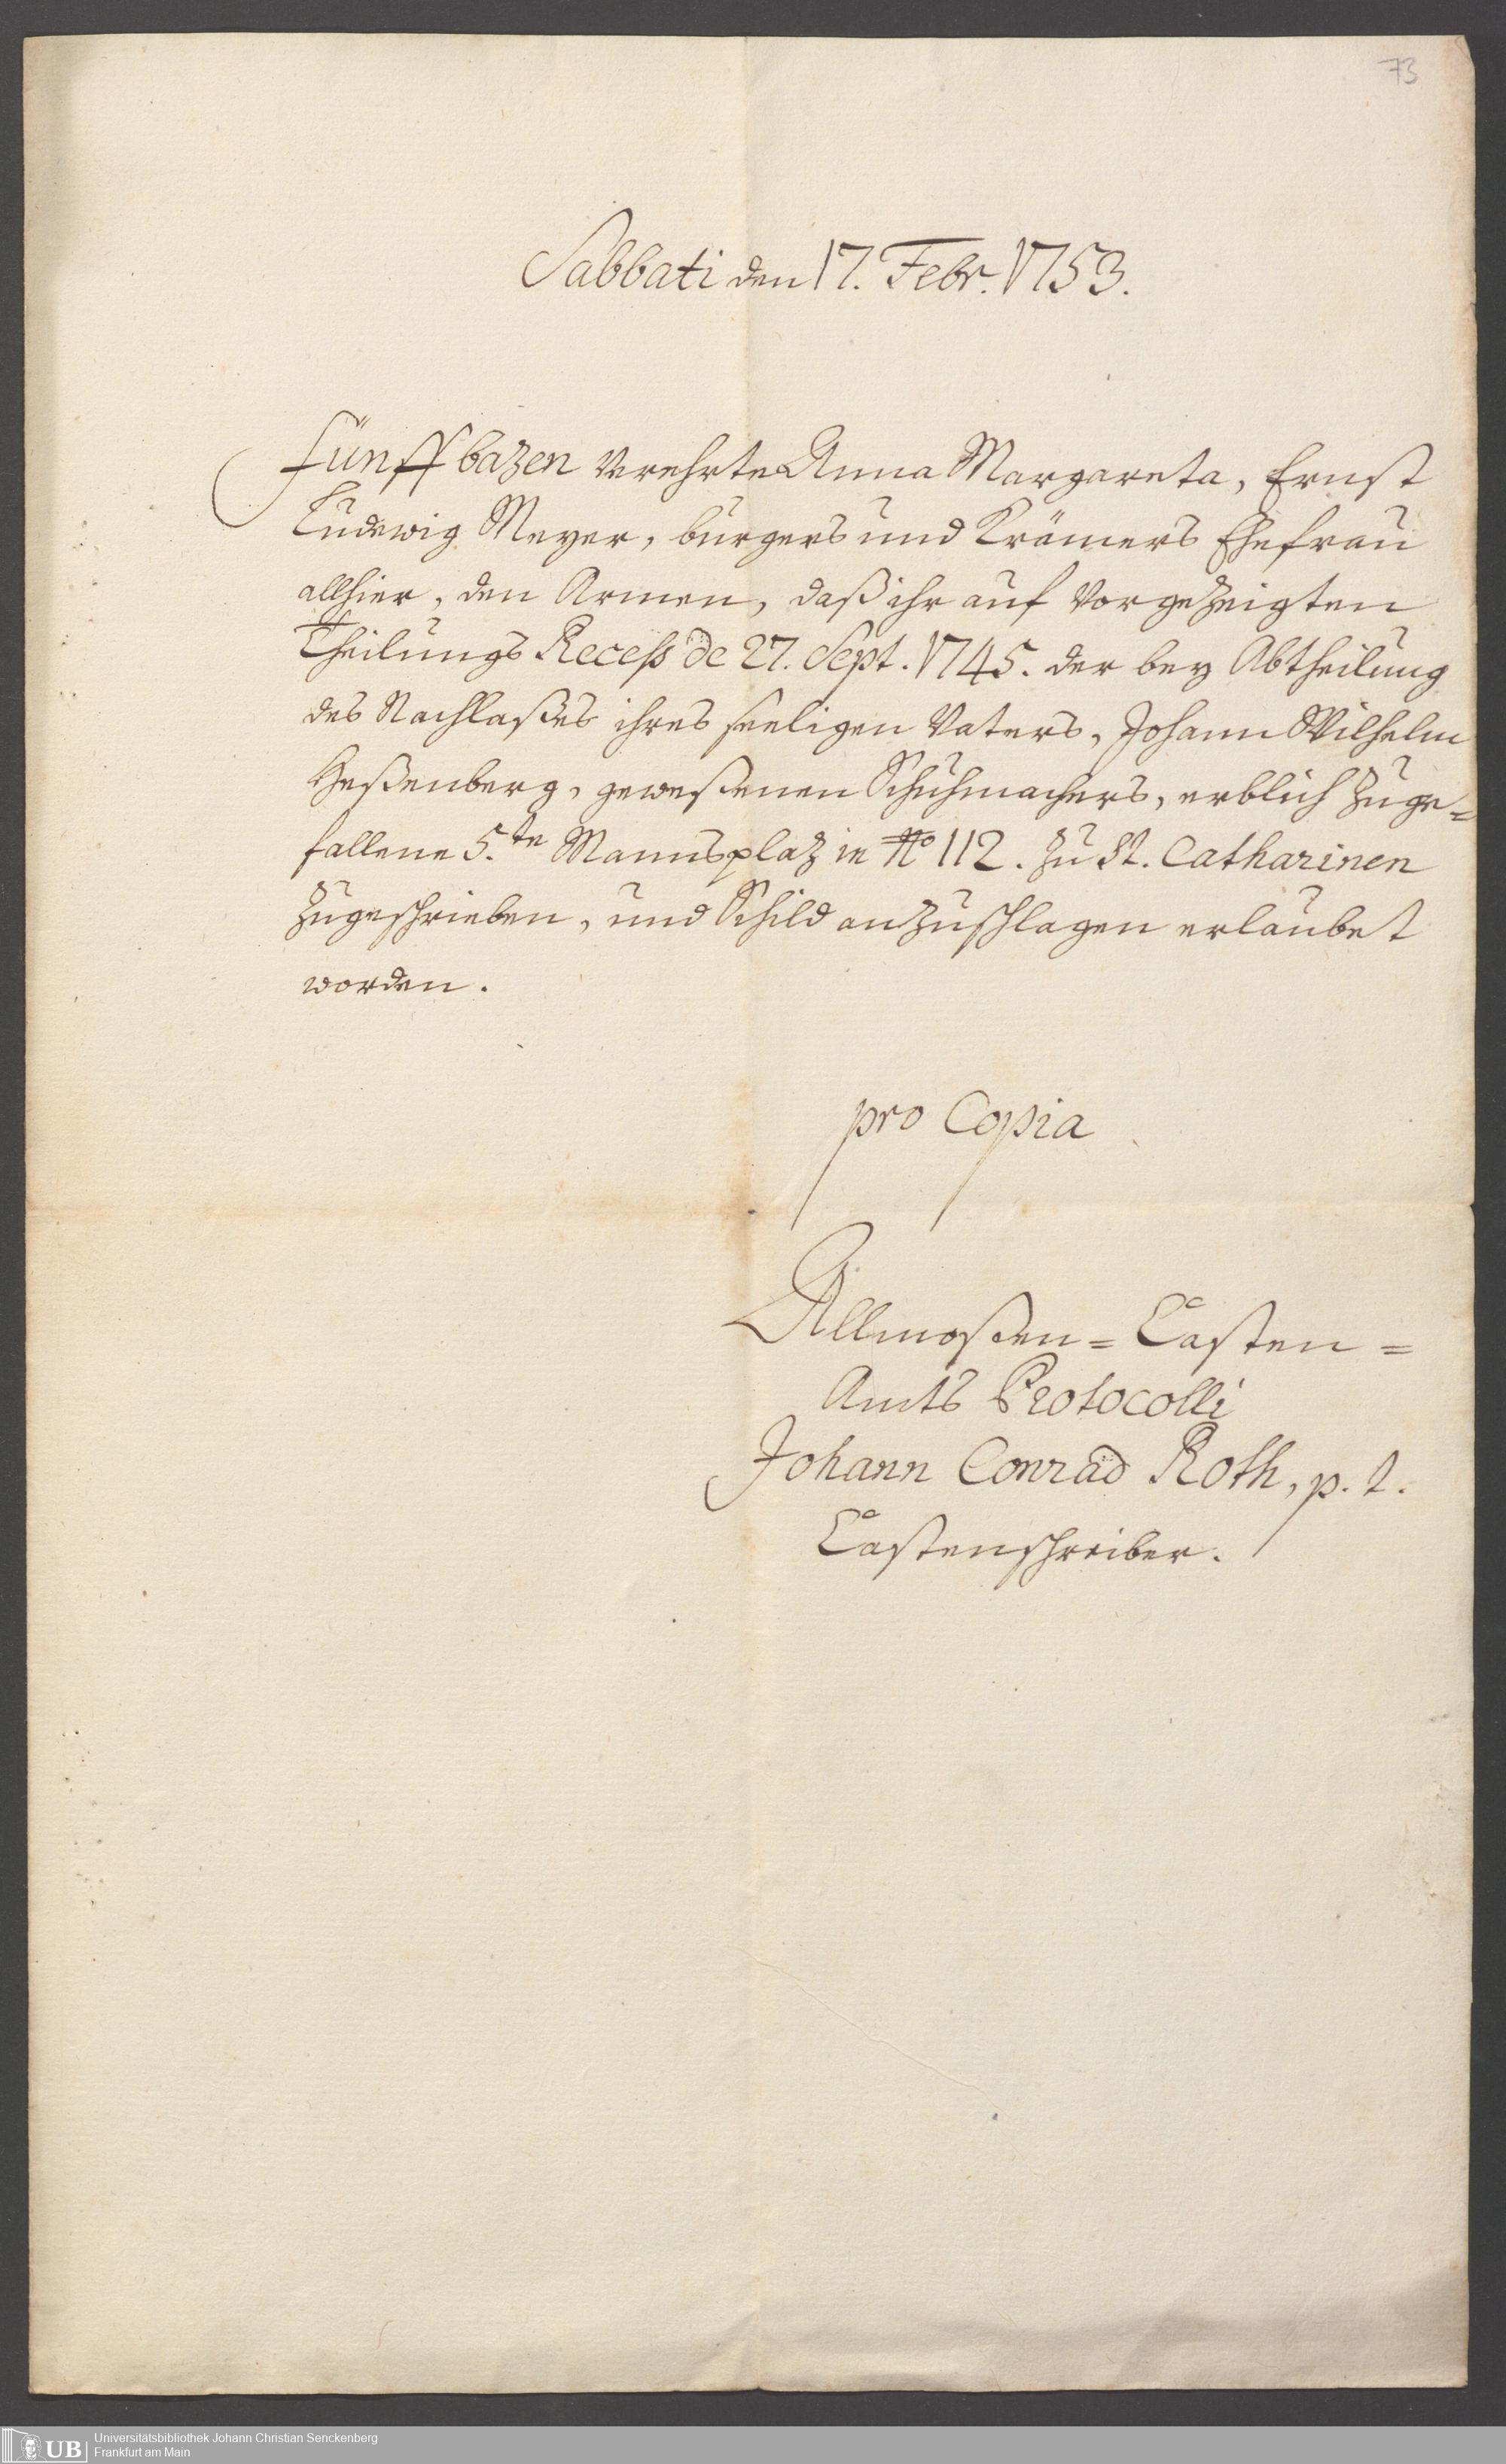 73
Sabbati den 17. Febr. 1753.
Fünff bazen verehrte Anna Margareta, Ernst
Ludewig Meyer, burgers und Krämers Ehefrau
allhier, den Armen, daß ihr auf vorgezeigten
Theilungs Recess de 27. Sept. 1745. der bey Abtheilung
des Nachlaßes ihres seeligen Vaters, Johann Wilhelm
Heßenberg, geweßenen Schuhmachers, erblich zuge=
fallene 5.te Mannsplaz in No 112. zu St. Catharinen
zugeschrieben, und Schild anzuschlagen erlaubet
worden.
pro Copia
Allmoßen=Casten=
Amts Protocolli
Johann Conrad Roth, p. t.
Castenschreiber.
UB
Universitätsbibliothek Johann Christian Senckenberg
Frankfurt am Main